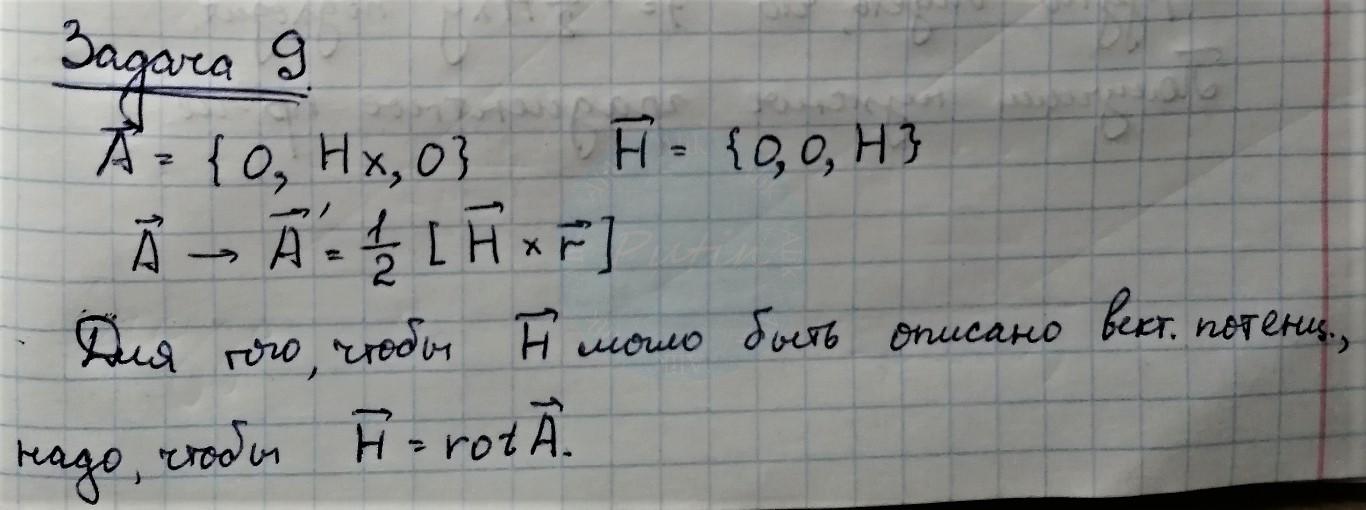 Задача 9.
A⃗ = {0, Hx, 0} H⃗ = {0, 0, H}
A⃗ → A⃗' = 1/2 [H⃗ × r⃗]
Для того, чтобы H⃗ могло быть описано вект. потенц.,
надо, чтобы H⃗ = rot A⃗.